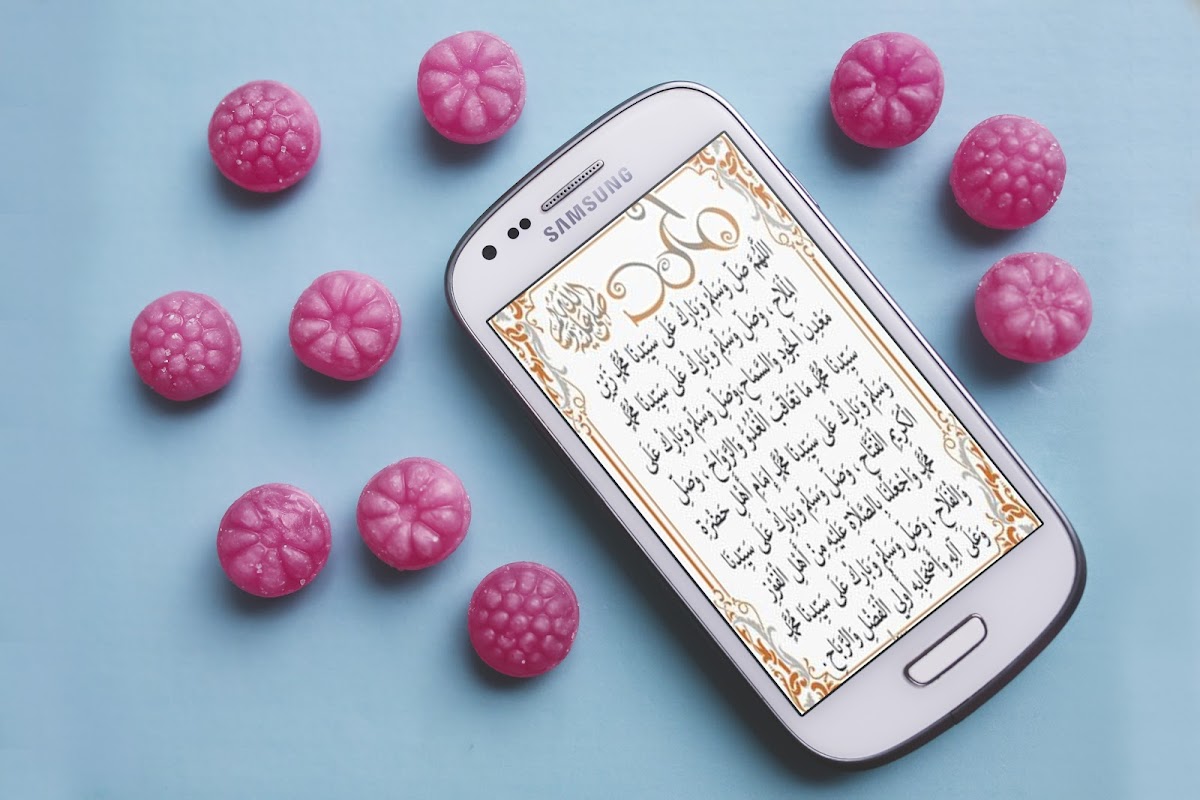 SAMSUNG
محمد
صلى الله عليه وسلم
اللَّهُمَّ صَلِّ وَسَلِّمْ وَبَارِكْ عَلَى سَيِّدِنَا مُحَمَّدٍ زَيْنِ
الْمِلَاحِ ، وَصَلِّ وَسَلِّمْ وَبَارِكْ عَلَى سَيِّدِنَا مُحَمَّدٍ
مَعْدِنِ الْجُودِ وَالسَّمَاحِ، وَصَلِّ وَسَلِّمْ وَبَارِكْ عَلَى
سَيِّدِنَا مُحَمَّدٍ مَا تَعَاقَبَ الْغُدُوُّ وَالرَّوَاحُ ، وَصَلِّ
وَسَلِّمْ وَبَارِكْ عَلَى سَيِّدِنَا مُحَمَّدٍ إِمَامِ أَهْلِ حَضْرَةِ
الْكَرِيمِ الْفَتَّاحِ ، وَصَلِّ وَسَلِّمْ وَبَارِكْ عَلَى سَيِّدِنَا
مُحَمَّدٍ وَاجْعَلْنَا بِالصَّلَاةِ عَلَيْهِ مِنْ أَهْلِ الْفَوْزِ
وَالْفَلَاحِ ، وَصَلِّ وَسَلِّمْ وَبَارِكْ عَلَى سَيِّدِنَا مُحَمَّدٍ
وَعَلَى آلِهِ وَأَصْحَابِهِ أُولِي الْفَضْلِ وَالرَّبَاحِ.